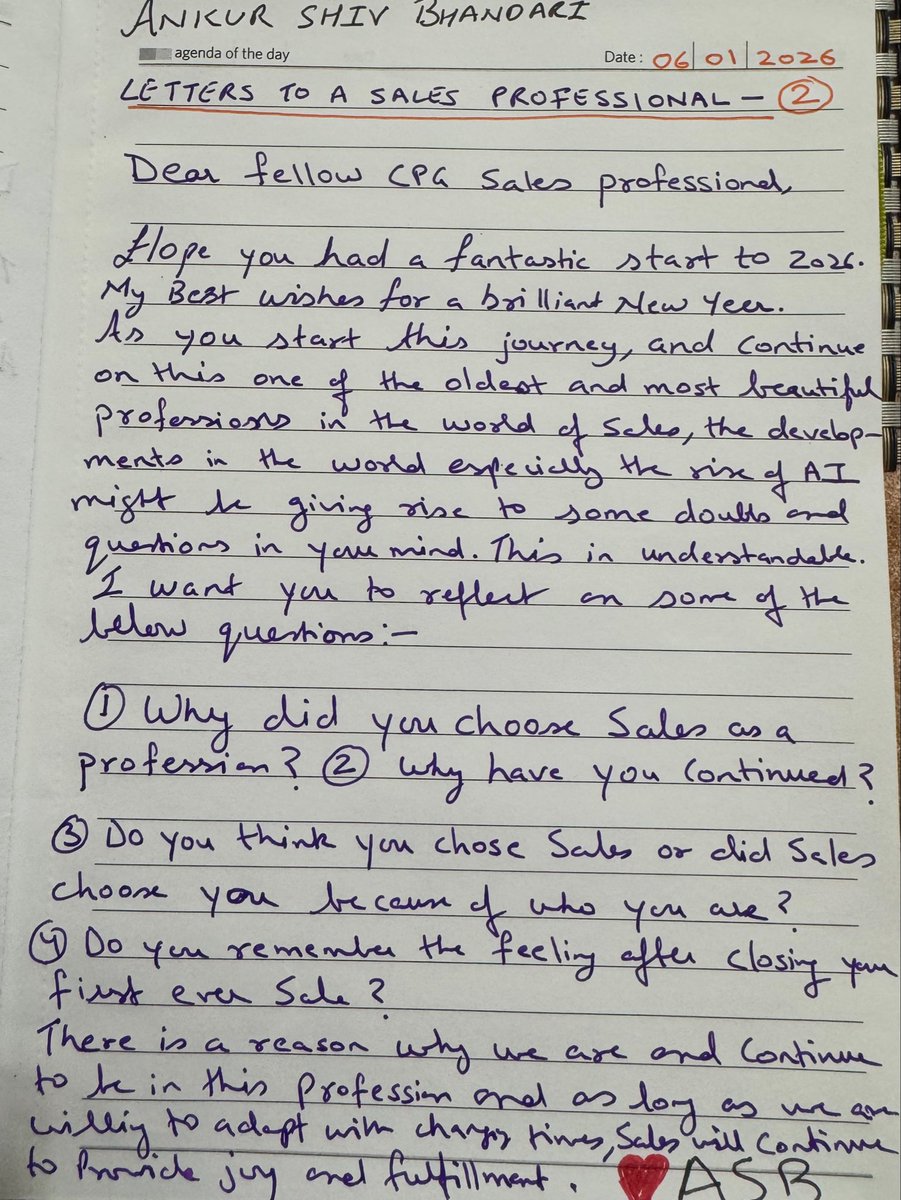 ANKUR SHIV BHANDARI
agenda of the day
Date: 06 01 2026
LETTERS TO A SALES PROFESSIONAL – 2
Dear fellow CPG Sales professional,
Hope you had a fantastic start to 2026.
My Best wishes for a brilliant New Year.
As you start this journey, and continue
on this one of the oldest and most beautiful
professions in the world of Sales, the develop-
ments in the world especially the rise of AI
might be giving rise to some doubts and
questions in your mind. This is understandable.
I want you to reflect on some of the
below questions:-
① Why did you choose Sales as a
profession? ② Why have you continued?
③ Do you think you chose Sales or did Sales
choose you because of who you are?
④ Do you remember the feeling after closing your
first ever Sale?
There is a reason why we are and continue
to be in this profession and as long as we are
willing to adapt with changing times, Sales will continue
to provide joy and fulfillment. ❤ ASB